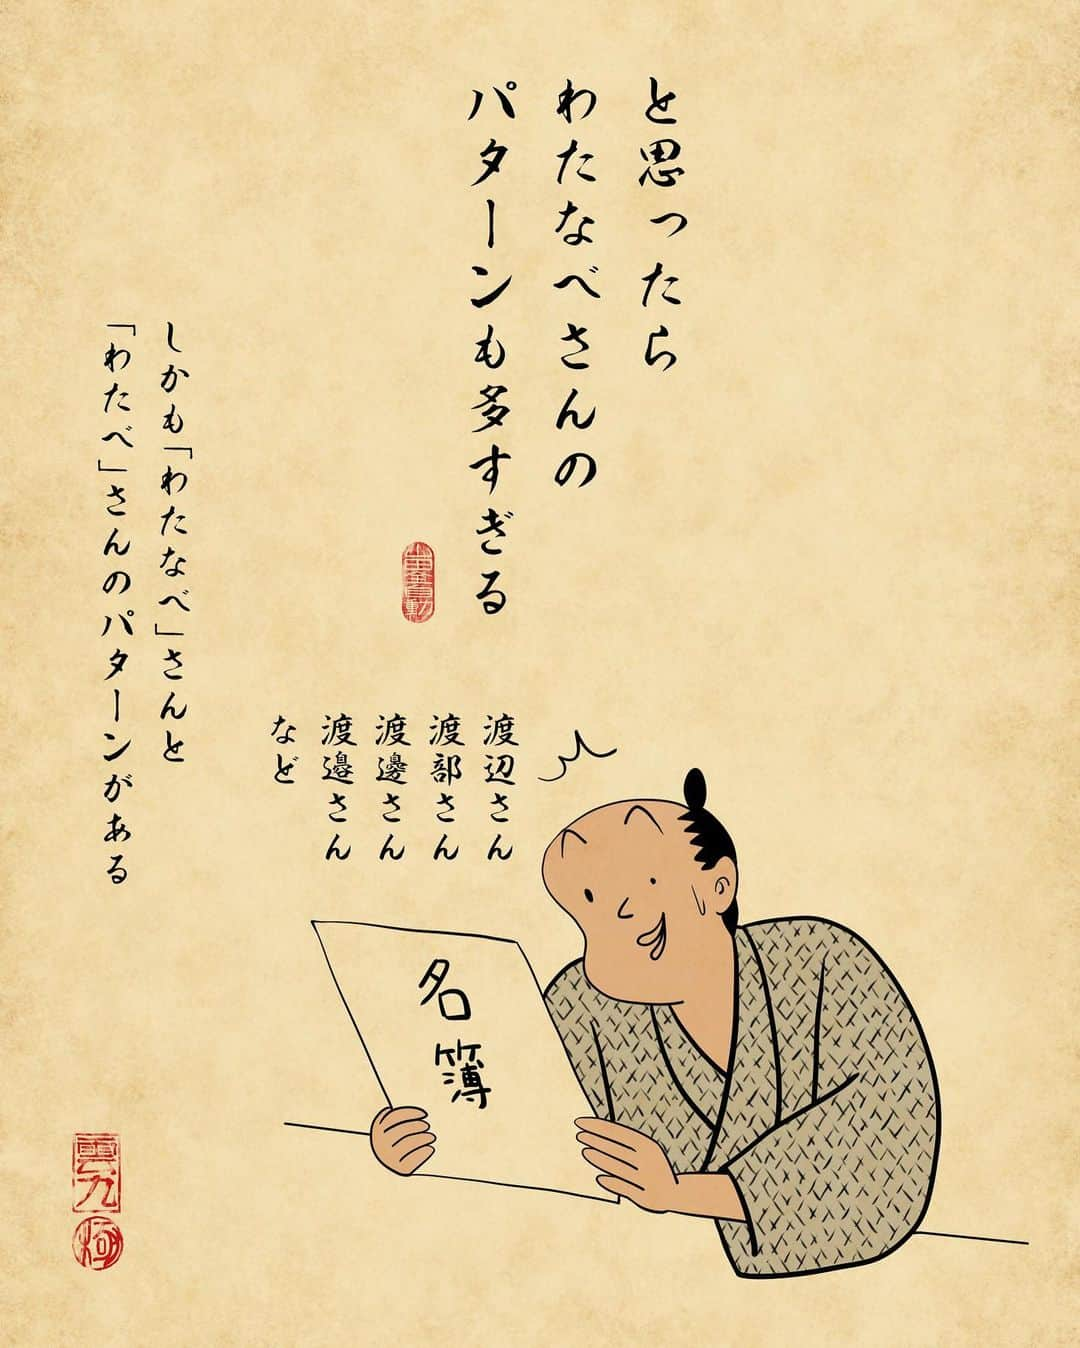 と思ったら
わたなべさんの
パターンも多すぎる
渡辺さん
渡部さん
渡邊さん
渡邉さん
など
しかも「わたなべ」さんと
「わたべ」さんのパターンがある
名簿